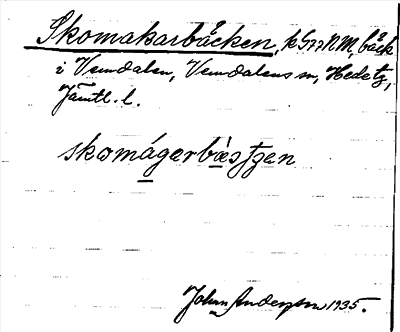 Skomakarbäcken, k G22 N M, bäck
i Vemdalen, Vemdalens sn, Hede tg,
Jämtl. l.
skomágerbæstzen
Johan Anderson 1935.